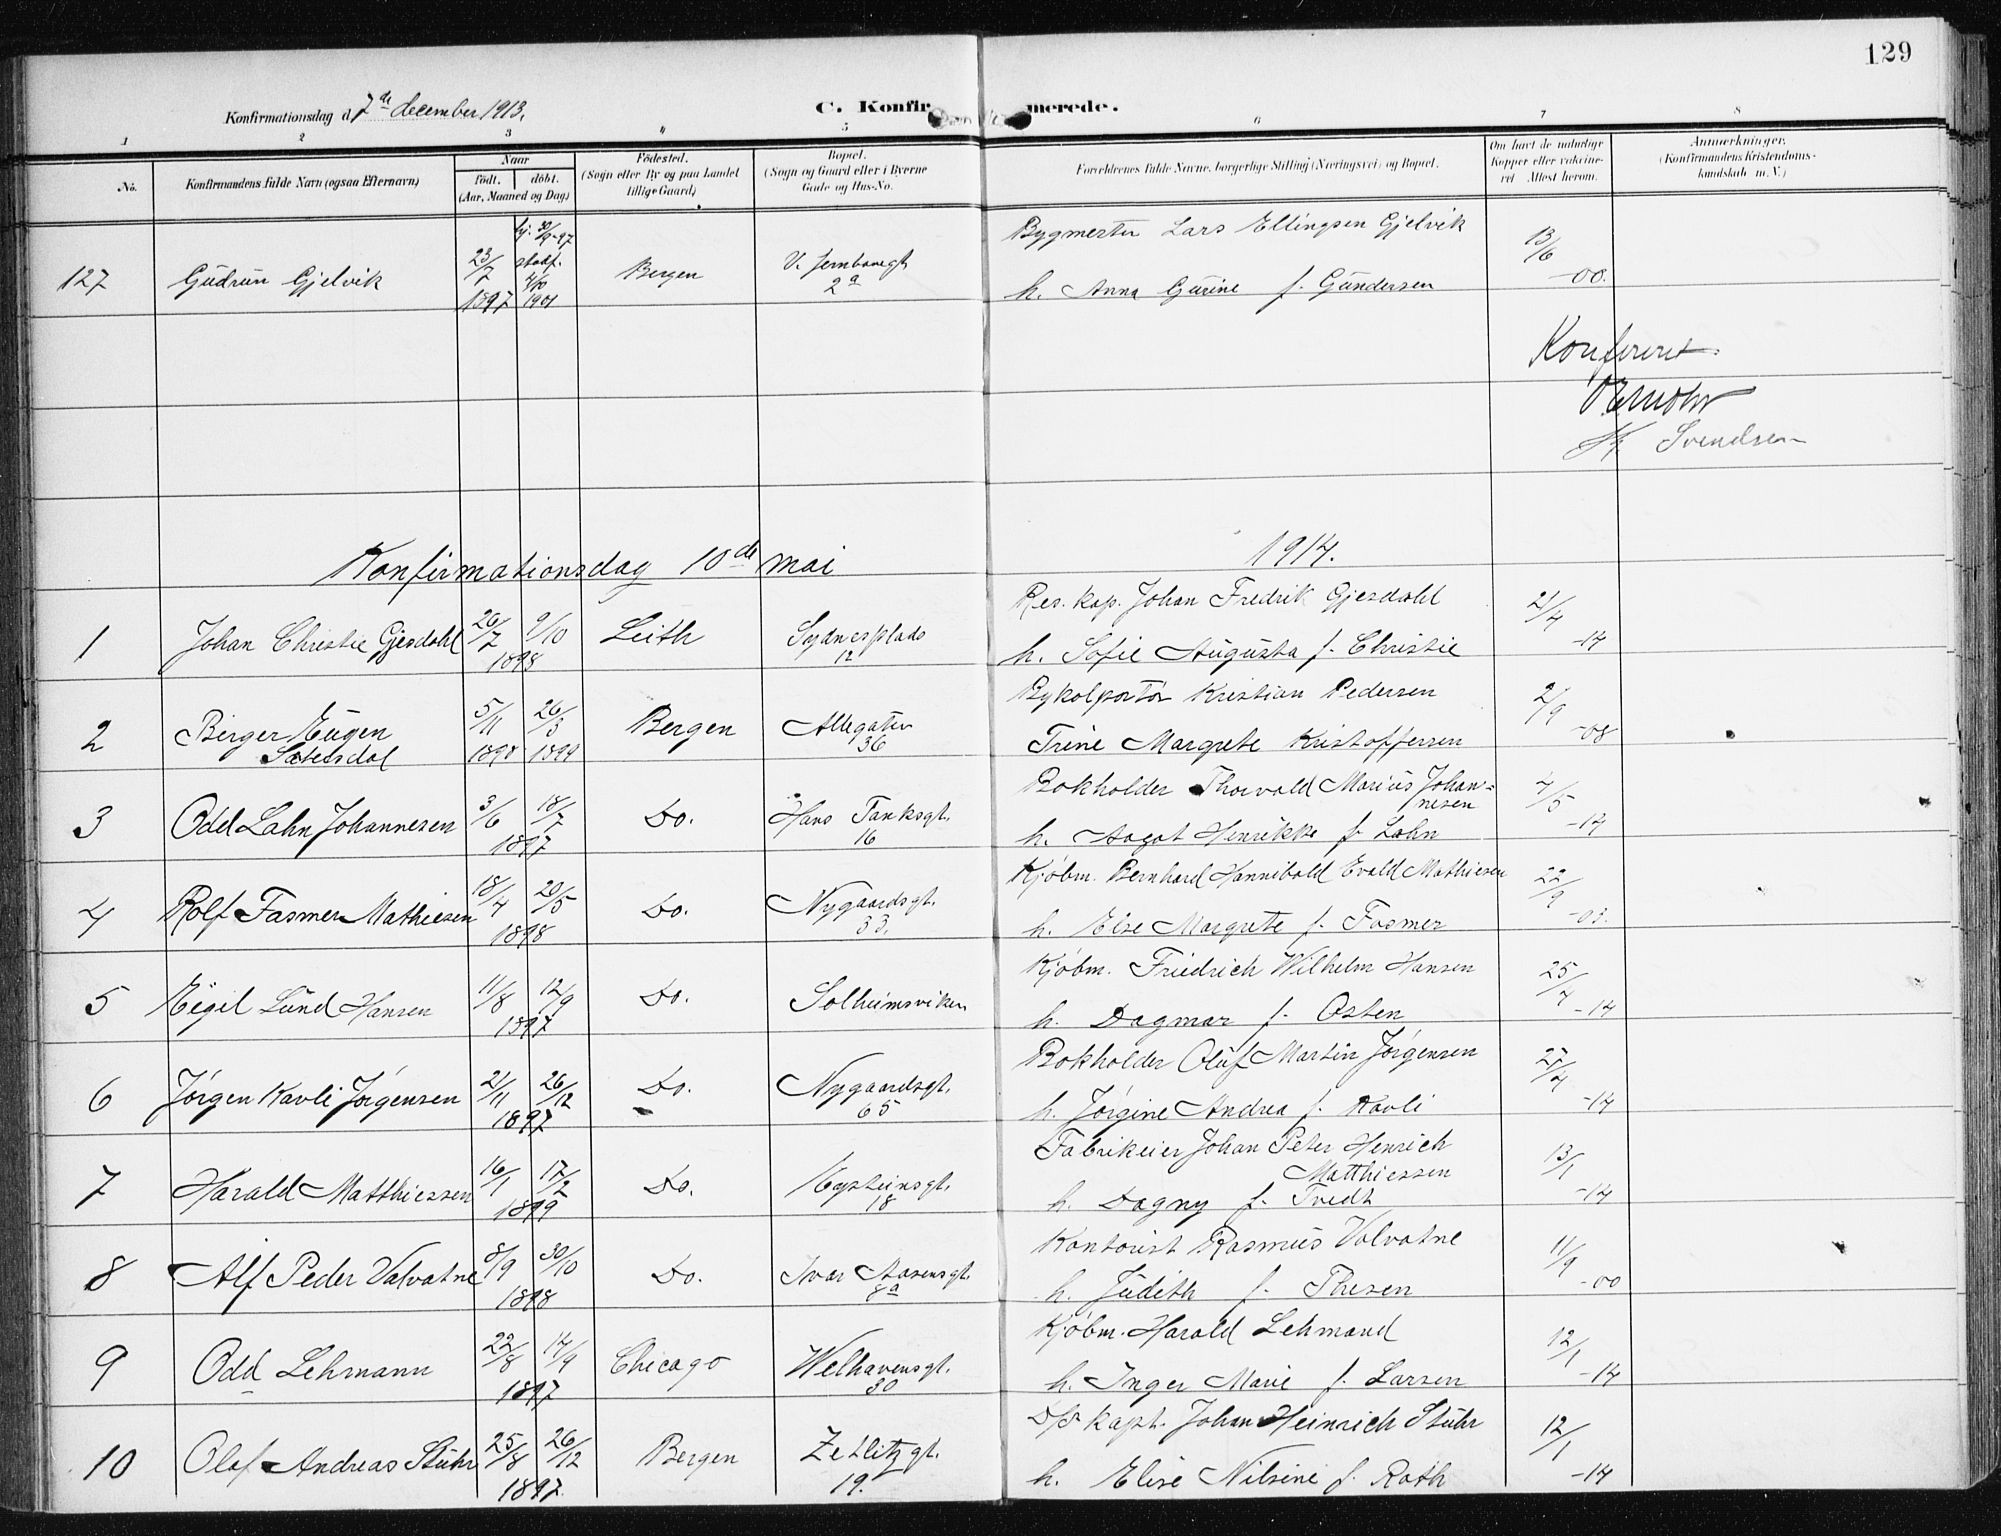 129
Konfirmationsdag d. 7de december 1913.
C. Konfirmerede.
1 2 3 4 5 6 7 8
No.
Konfirmandens fulde Navn (ogsaa Efternavn)
Naar
født. døbt.
(Aar, Maaned og Dag)
Fødested.
(Sogn eller By og paa Landet
tillige Gaard)
Bopæl.
(Sogn og Gaard eller i Byerne
Gade og Hus-No.
Forældrenes fulde Navne, borgerlige Stilling (Næringsvei) og Bopæl.
Om havt de naturlige
Kopper eller vakcine-
ret Attest herom.
Anmerkninger.
(Konfirmandens Kristendoms-
kundskab m. V.)
127 Gudrun Gjelvik 23/7 1897 hj. 30/9-97 stadf. 4/10 1901 Bergen V. Jernbanegt. 2a
Bygmester Lars Ellingsen Gjelvik
h. Anna Gurine f. Gundersen 13/6 -00.
Konfereret
Svendsen
Konfirmationsdag 10de mai 1914.
1 Johan Christie Gjesdahl 26/7 9/10 1898 Leith Sydnesplads 12
Res. kap. Johan Fredrik Gjesdahl
h. Sofie Augusta f. Christie 21/4 -14
2 Birger Eugen
Sætersdal 5/11 1898 26/3 1899 Bergen Allegaten 36
Bykolportør Kristian Pedersen
Trine Margrete Kristoffersen 2/9 -08
3 Odd Lahn Johannesen 3/6 18/7 1897 Do. Hans Tanksgt. 16
Bokholder Thorvald Marius Johan-
nesen
h. Aagot Henrikke f. Lahn 4/5 -14
4 Rolf Fasmer Mathiesen 18/4 20/5 1898 Do. Nygaardsgt. 33.
Kjøbm. Bernhard Hannibald Evald Mathiesen
h. Else Margrete f. Fasmer 22/9 -03.
5 Eigil Lund Hansen 11/8 12/9 1897 Do. Solheimsviken
Kjøbm. Friedrich Wilhelm Hansen
h. Dagmar f. Osten 25/4 -14
6 Jørgen Kavli Jørgensen 21/11 26/12 1897 Do. Nygaardsgt. 65
Bokholder Oluf Martin Jørgensen
h. Jørgine Andrea f. Kavli 27/4 -14
7 Harald Matthiessen 16/1 17/2 1899 Do. Eysteinsgt. 18
Fabrikeier Johan Peter Henrich
Matthiessen
h. Dagny f. Tvedt 13/1 -14
8 Alf Peder Valvatne 8/9 30/10 1898 Do. Ivar Aasensgt. 8a
Kontorist Rasmus Valvatne
h. Judith f. Thesen 11/9 -00
9 Odd Lehmann 22/8 14/9 1897 Chicago Welhavensgt. 30
Kjøbm. Harald Lehmand
h. Inger Marie f. Larsen 12/1 -14
10 Olaf Andreas Stuhr 25/8 26/12 1897. Bergen Zetlitzgt. 19.
D/S kapt. Johan Heinrich Stuhr
h. Elise Nilsine f. Roth 12/1 -14